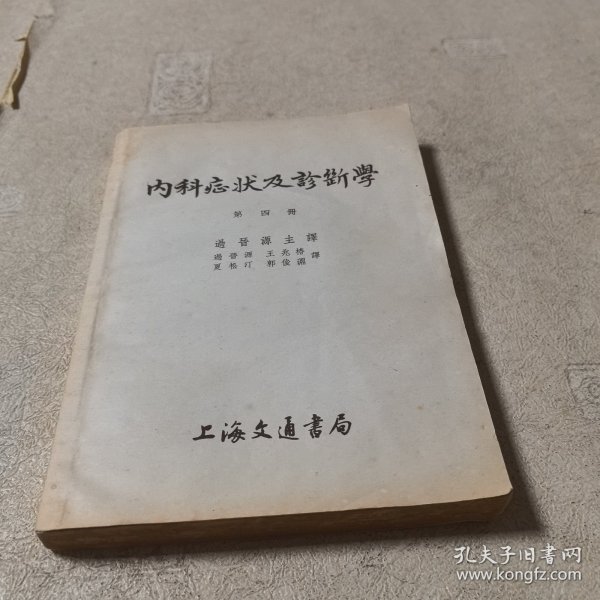 內科症狀及診斷學
第四冊
過晉源主譯
過晉源 王兆椿
夏依汀 郭俊淵 譯
上海文通書局
孔夫子旧书网
www.kongfz.com